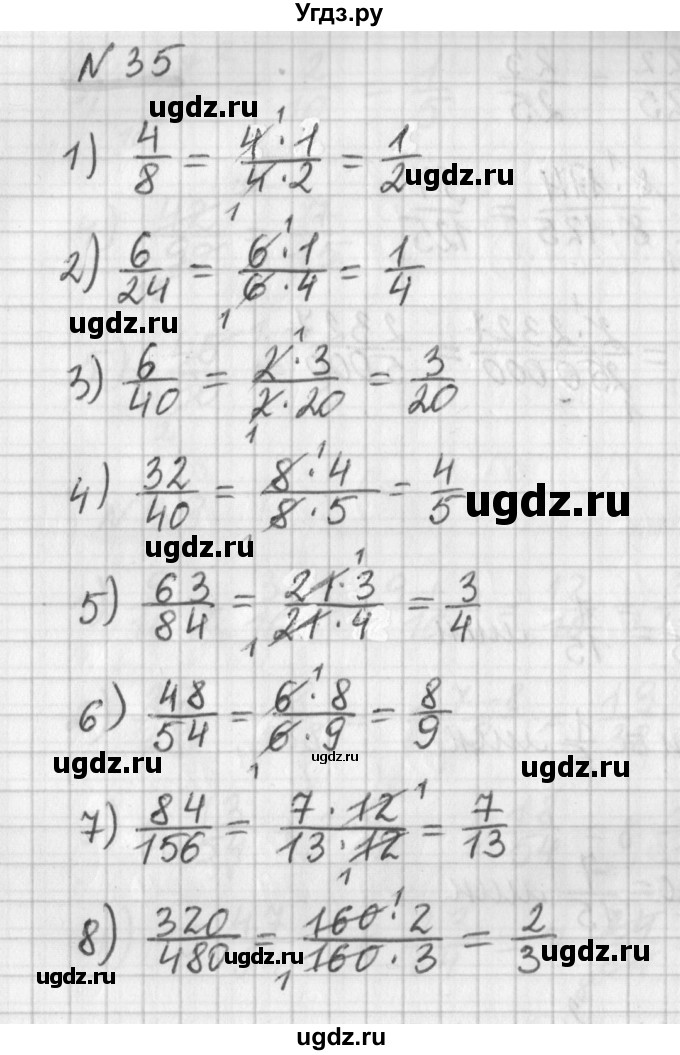 Угдз.ру
N 35
ugdz.ru
1) 4/8 = 4·1/4·2 = 1/2
1 1
ugdz.ru
2) 6/24 = 6·1/6·4 = 1/4
1 1
ugdz.ru
3) 6/40 = 2·3/2·20 = 3/20
1 1
4) 32/40 = 8·4/8·5 = 4/5
1
ugdz.ru
ugdz.ru
5) 63/84 = 21·3/21·4 = 3/4
1 1
6) 48/54 = 6·8/6·9 = 8/9
1 1
ugdz.ru
ugdz.ru
ugdz.ru
7) 84/156 = 7·12/13·12 = 7/13
1 1
8) 320/480 = 160·2/160·3 = 2/3
1 1
ugdz.ru
ugdz.ru
ugdz.ru
ugdz.ru